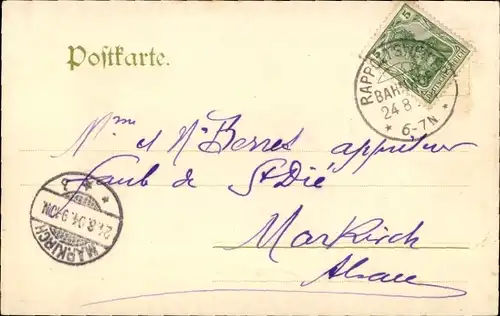 Postkarte.
5
RAPPOLTSWEILER
BAHNHOF
24 8
* 6-7N *
Mme et Mr Berret appreteur
Faub de St Dié
Markirch
Alsace
MARKIRCH
24.8.04. 9-10N.
* b *